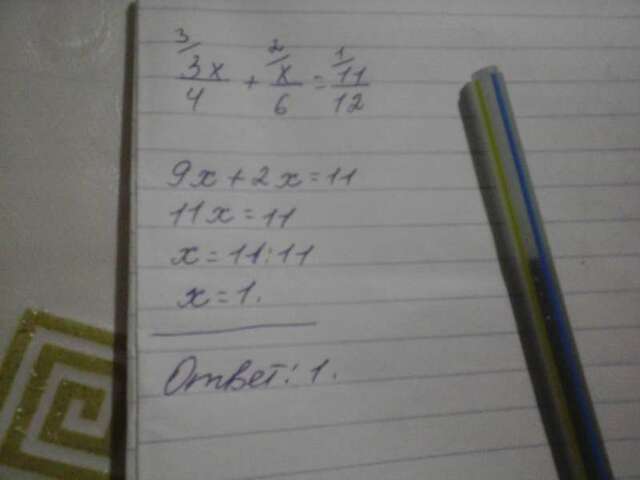 3/ 2/ 1/
3x/4 + x/6 = 11/12
9x + 2x = 11
11x = 11
x = 11 : 11
x = 1.
Ответ: 1.